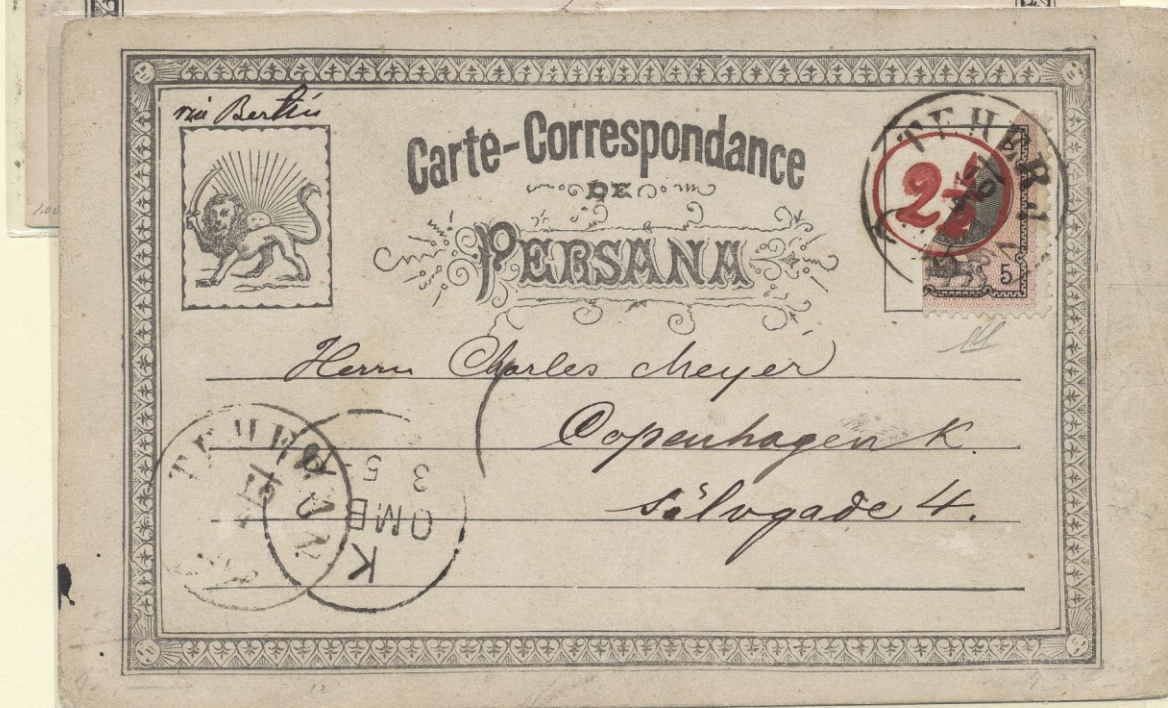 via Berlin
Carte-Correspondance
DE
PERSANA
TEHERAN
2½
5
Herrn Charles Meyer
Copenhagen K.
Sølvgade 4.
TEHERAN
K
OMB
3 5